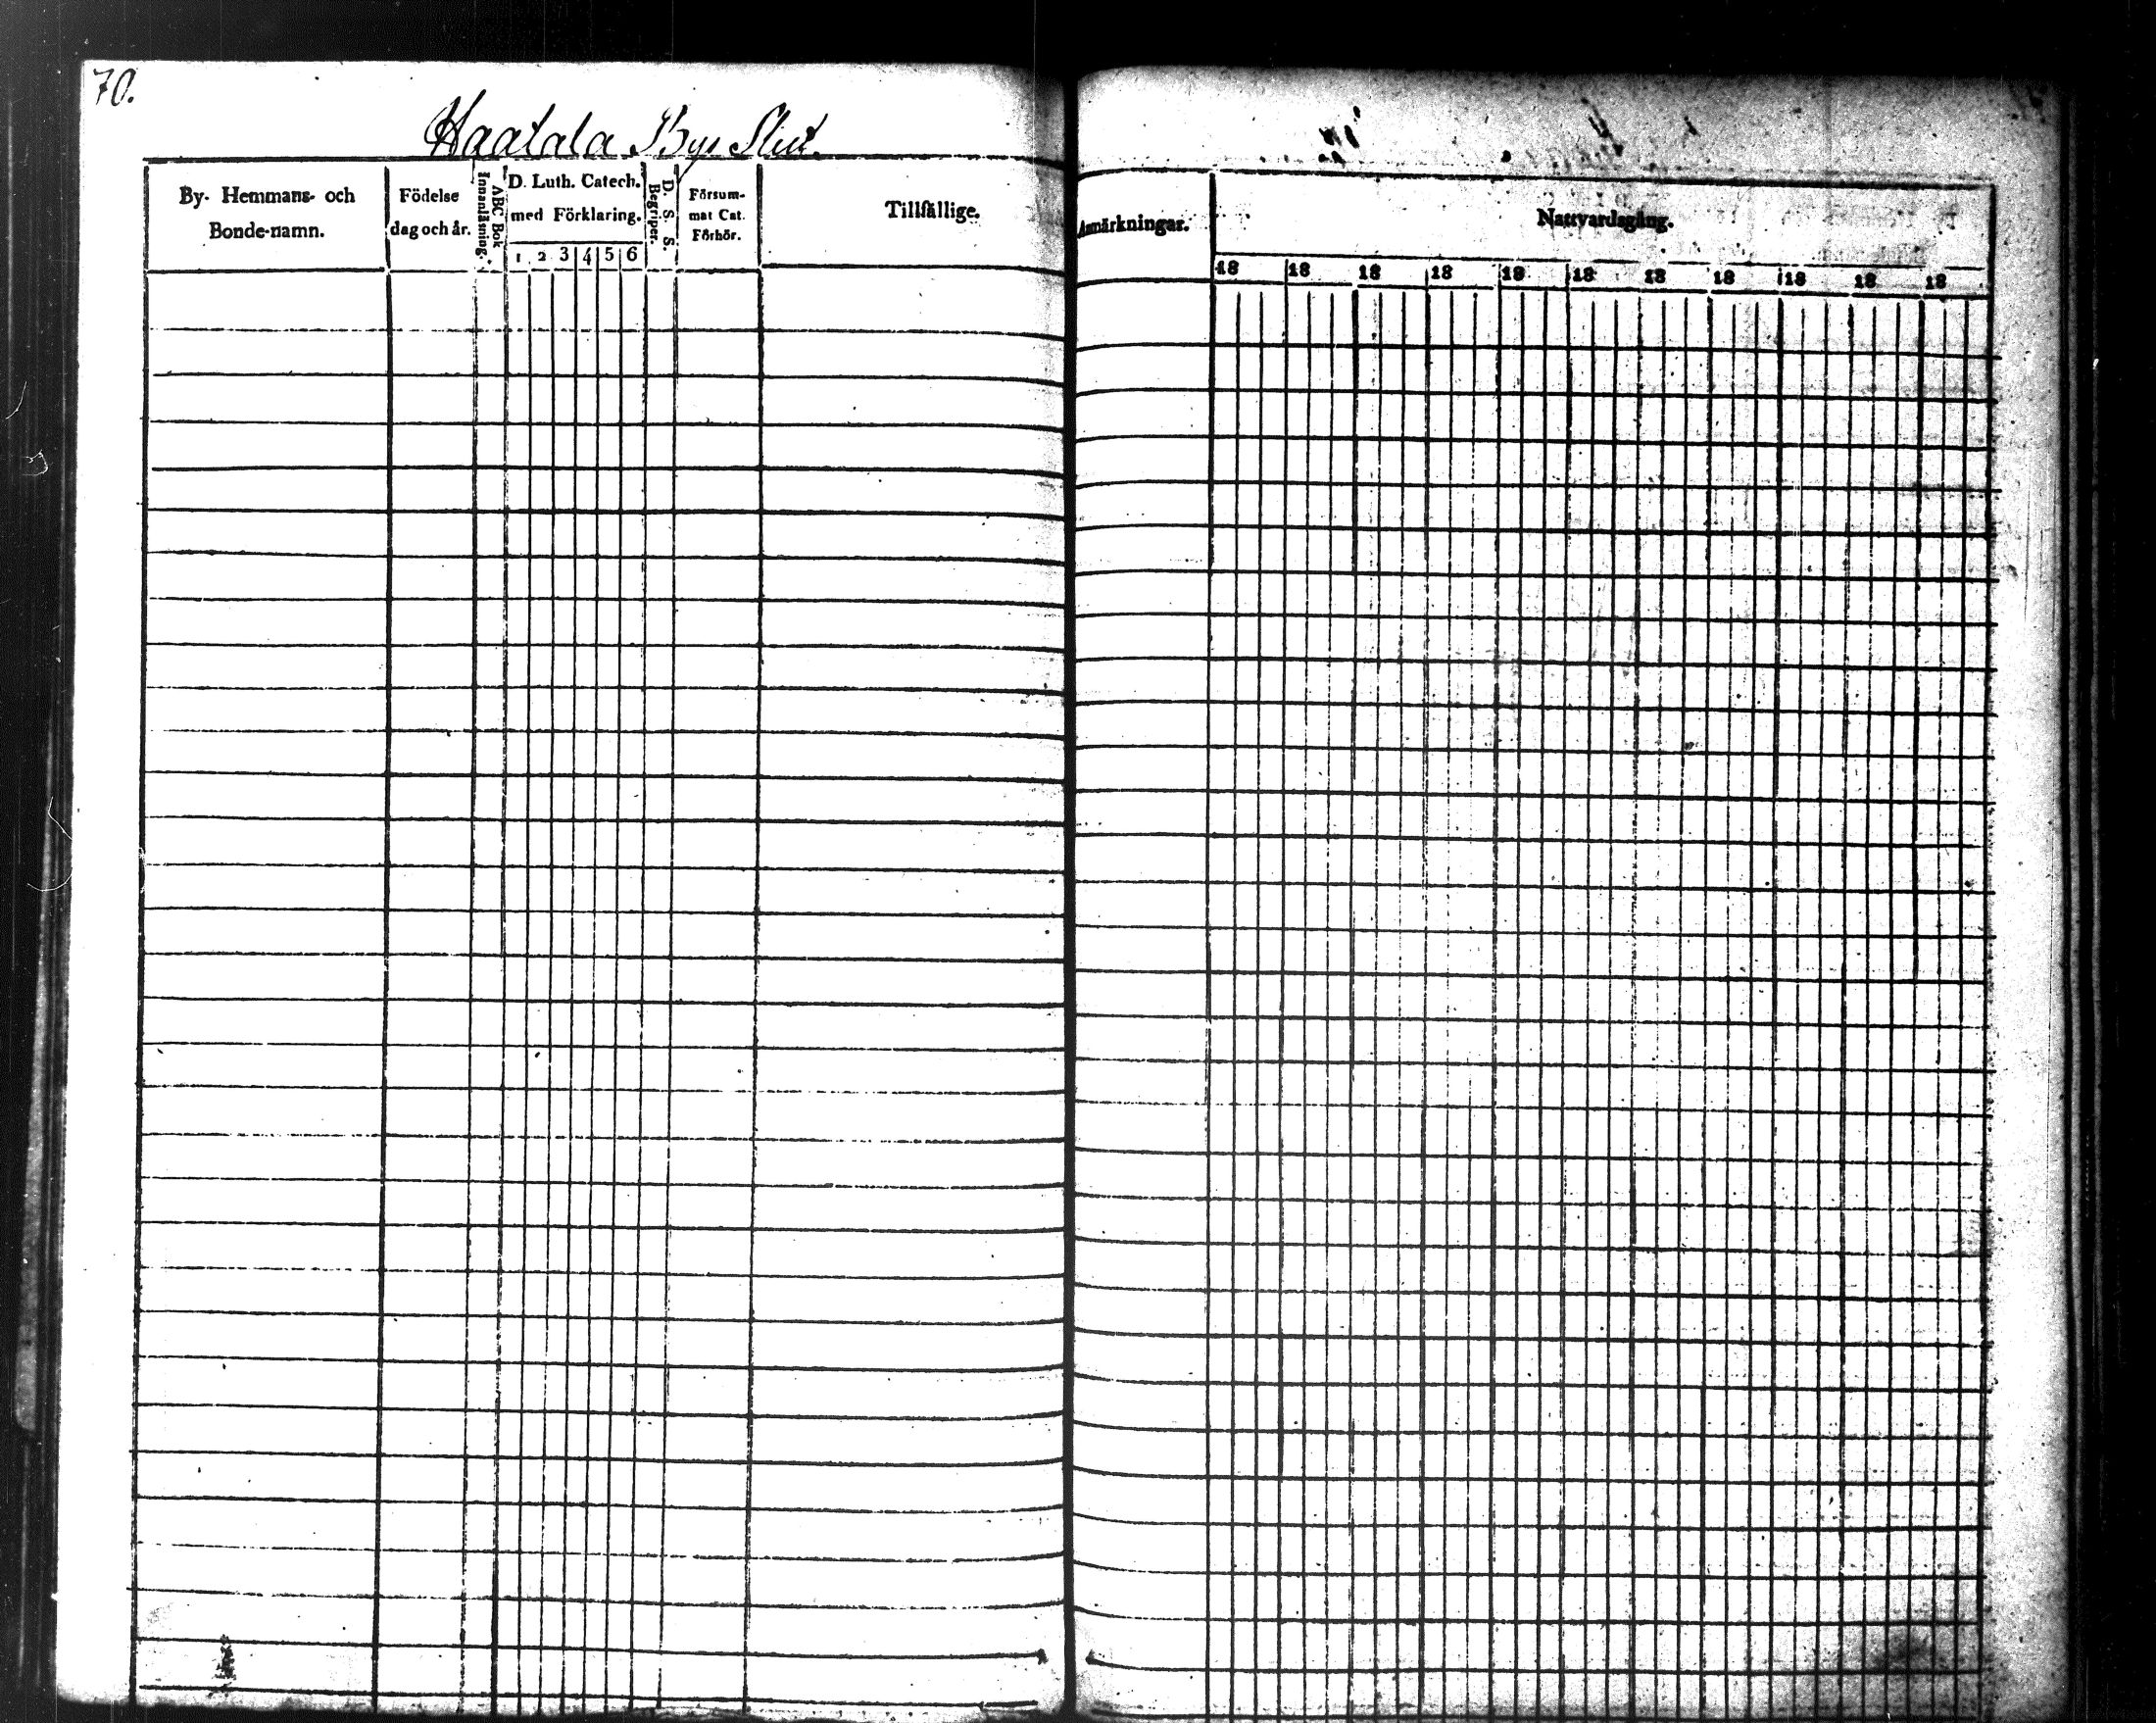 70.
Haatala Bys Slut.
By- Hemmans- och
Bonde-namn.
Födelse
dag och år.
ABC Bok
Innanläsning.
D. Luth. Catech.
med Förklaring.
1 2 3 4 5 6
D. S. S.
Begriper.
Försum-
mat Cat.
Förhör.
Tillfällige.
Anmärkningar.
Nattvardsgång.
18 18 18 18 18 18 18 18 18 18 18